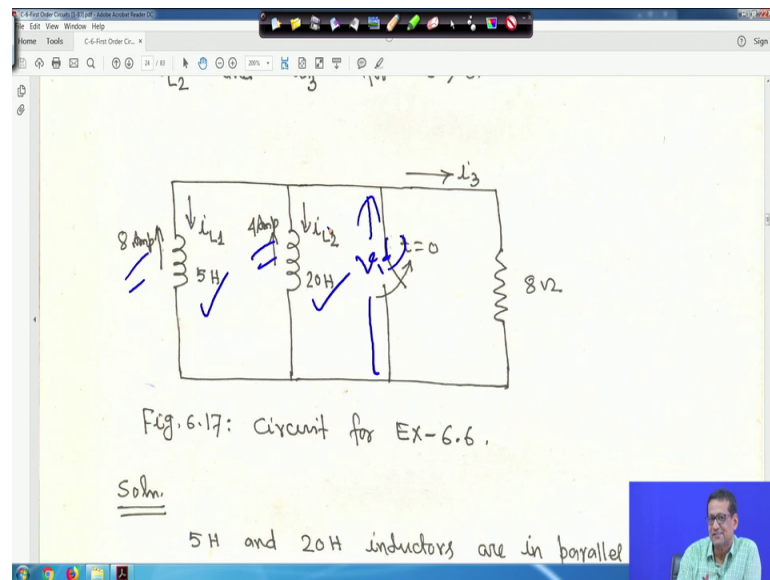 C-6-First Order Circuits [1-87].pdf - Adobe Acrobat Reader DC
File Edit View Window Help
Home Tools C-6-First Order Cir... × Sign
24 / 83 200%
8 Amp
i_L1
5 H
4 Amp
i_L2
20 H
t=0
i_3
8 Ω
Fig. 6.17: Circuit for EX-6.6.
Soln.
5H and 20H inductors are in parallel